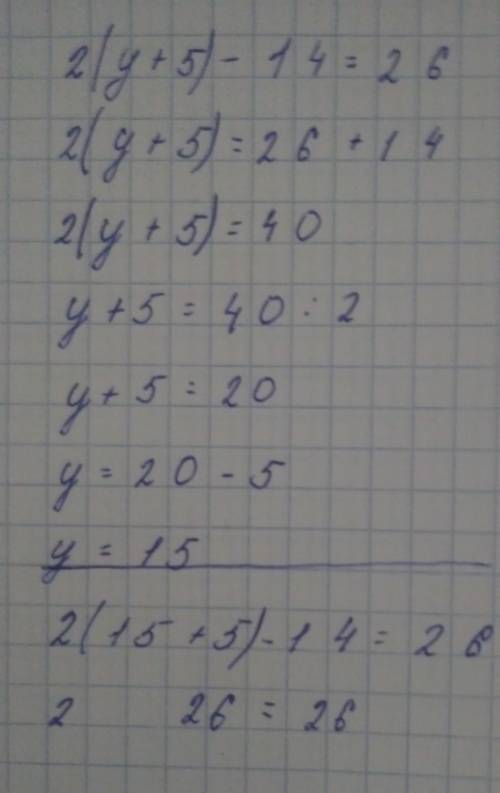 2(y+5)-14=26
2(y+5)=26+14
2(y+5)=40
y+5=40:2
y+5=20
y=20-5
y=15
2(15+5)-14=26
2 26=26